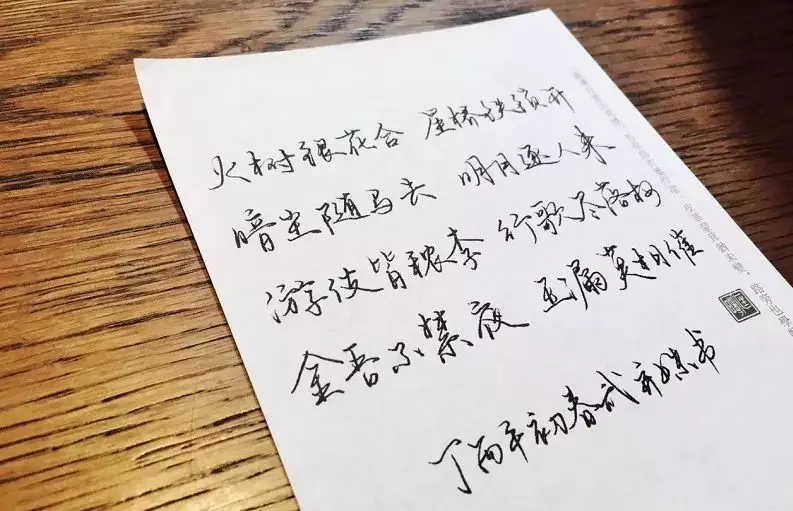 火树银花合 星桥铁锁开
暗尘随马去 明月逐人来
游伎皆秾李 行歌尽落梅
金吾不禁夜 玉漏莫相催
丁酉年初春武亦姝书
路旁也學